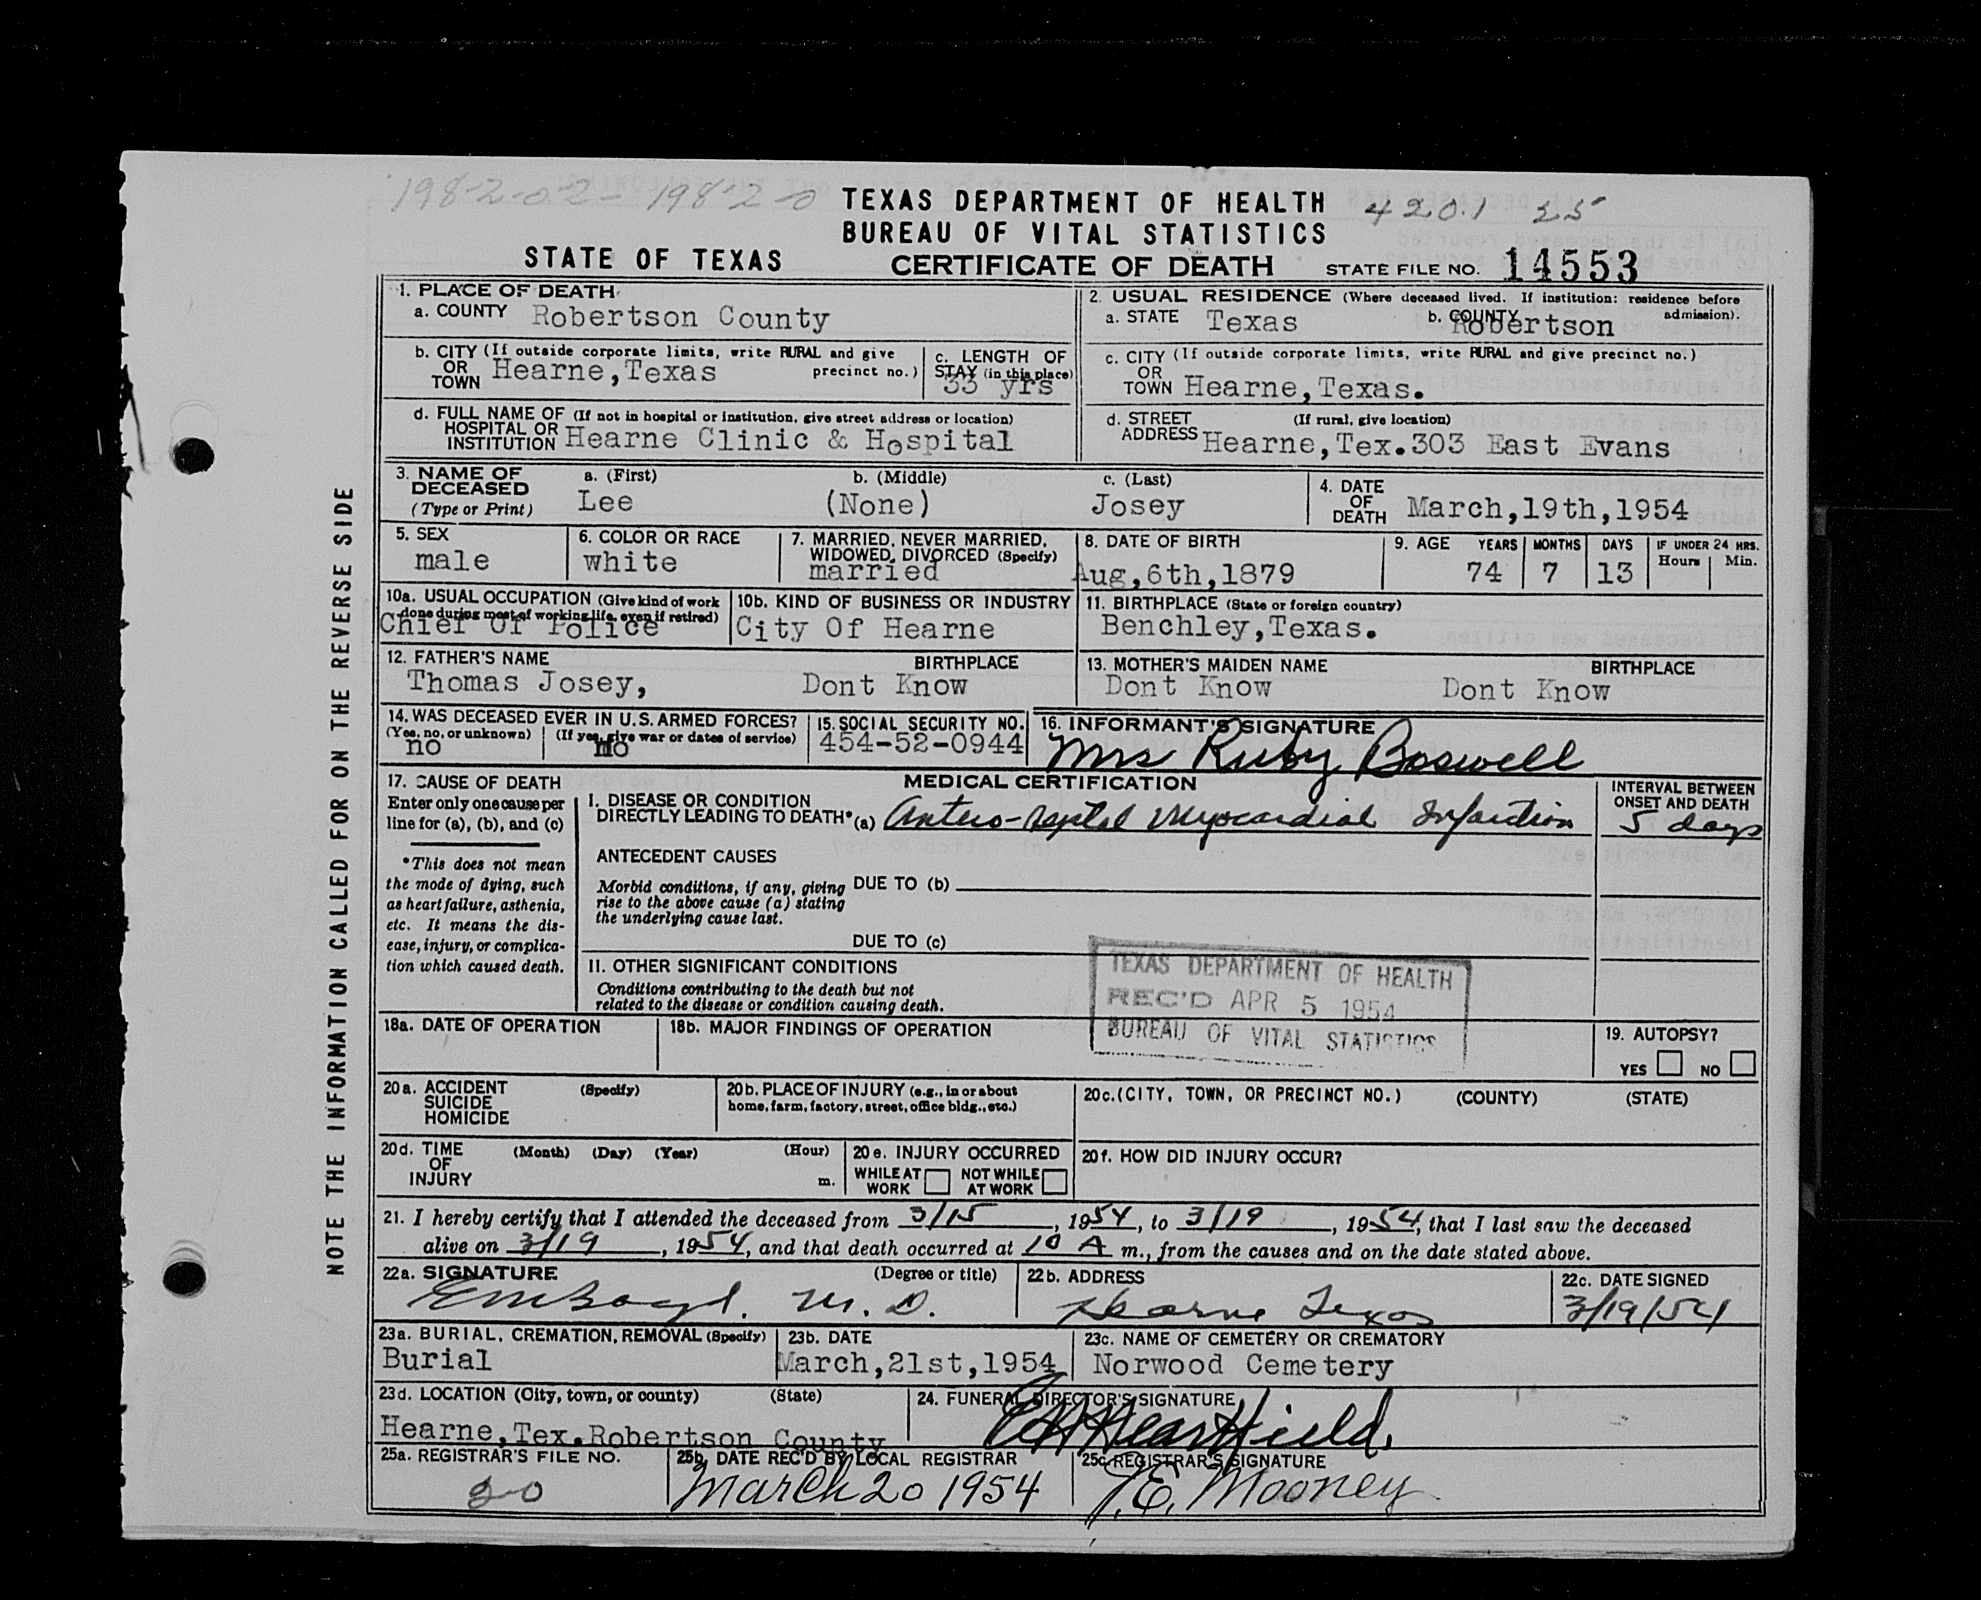 198-2-02- 198-2-0
TEXAS DEPARTMENT OF HEALTH 4201 25
BUREAU OF VITAL STATISTICS
STATE OF TEXAS CERTIFICATE OF DEATH STATE FILE NO. 14553
NOTE THE INFORMATION CALLED FOR ON THE REVERSE SIDE
1. PLACE OF DEATH
a. COUNTY Robertson County
2. USUAL RESIDENCE (Where deceased lived. If institution: residence before admission).
a. STATE Texas b. COUNTY Robertson
b. CITY (If outside corporate limits, write RURAL and give precinct no.)
OR TOWN Hearne,Texas
c. LENGTH OF STAY (in this place) 33 yrs
c. CITY (If outside corporate limits, write RURAL and give precinct no.)
OR TOWN Hearne,Texas.
d. FULL NAME OF (If not in hospital or institution, give street address or location)
HOSPITAL OR INSTITUTION Hearne Clinic & Hospital
d. STREET ADDRESS (If rural, give location)
Hearne,Tex.303 East Evans
3. NAME OF DECEASED (Type or Print) a. (First) b. (Middle) c. (Last)
Lee (None) Josey
4. DATE OF DEATH March,19th,1954
5. SEX male
6. COLOR OR RACE white
7. MARRIED, NEVER MARRIED, WIDOWED, DIVORCED (Specify) married
8. DATE OF BIRTH Aug,6th,1879
9. AGE YEARS MONTHS DAYS IF UNDER 24 HRS. Hours Min.
74 7 13
10a. USUAL OCCUPATION (Give kind of work done during most of working life, even if retired)
Chief Of Police
10b. KIND OF BUSINESS OR INDUSTRY
City Of Hearne
11. BIRTHPLACE (State or foreign country)
Benchley,Texas.
12. FATHER'S NAME BIRTHPLACE
Thomas Josey, Dont Know
13. MOTHER'S MAIDEN NAME BIRTHPLACE
Dont Know Dont Know
14. WAS DECEASED EVER IN U.S. ARMED FORCES?
(Yes, no, or unknown) (If yes, give war or dates of service)
no no
15. SOCIAL SECURITY NO.
454-52-0944
16. INFORMANT'S SIGNATURE
Mrs Ruby Boswell
17. CAUSE OF DEATH
Enter only one cause per line for (a), (b), and (c)
*This does not mean the mode of dying, such as heart failure, asthenia, etc. It means the disease, injury, or complication which caused death.
MEDICAL CERTIFICATION
INTERVAL BETWEEN ONSET AND DEATH
I. DISEASE OR CONDITION
DIRECTLY LEADING TO DEATH* (a) Antero-septal Myocardial Infarction 5 days
ANTECEDENT CAUSES
Morbid conditions, if any, giving rise to the above cause (a) stating the underlying cause last.
DUE TO (b)
DUE TO (c)
II. OTHER SIGNIFICANT CONDITIONS
Conditions contributing to the death but not related to the disease or condition causing death.
TEXAS DEPARTMENT OF HEALTH
REC'D APR 5 1954
BUREAU OF VITAL STATISTICS
18a. DATE OF OPERATION
18b. MAJOR FINDINGS OF OPERATION
19. AUTOPSY?
YES NO
20a. ACCIDENT SUICIDE HOMICIDE (Specify)
20b. PLACE OF INJURY (e.g., in or about home, farm, factory, street, office bldg., etc.)
20c. (CITY, TOWN, OR PRECINCT NO.) (COUNTY) (STATE)
20d. TIME OF INJURY (Month) (Day) (Year) (Hour) m.
20e. INJURY OCCURRED
WHILE AT WORK NOT WHILE AT WORK
20f. HOW DID INJURY OCCUR?
21. I hereby certify that I attended the deceased from 3/15, 1954, to 3/19, 1954, that I last saw the deceased
alive on 3/19, 1954, and that death occurred at 10 A m., from the causes and on the date stated above.
22a. SIGNATURE (Degree or title)
M. D.
22b. ADDRESS
Hearne Texas
22c. DATE SIGNED
3/19/54
23a. BURIAL, CREMATION, REMOVAL (Specify)
Burial
23b. DATE
March,21st,1954
23c. NAME OF CEMETERY OR CREMATORY
Norwood Cemetery
23d. LOCATION (City, town, or county) (State)
Hearne,Tex.Robertson County
24. FUNERAL DIRECTOR'S SIGNATURE
Hearthfield.
25a. REGISTRAR'S FILE NO.
25b. DATE REC'D BY LOCAL REGISTRAR
March 20 1954
25c. REGISTRAR'S SIGNATURE
J.E. Mooney